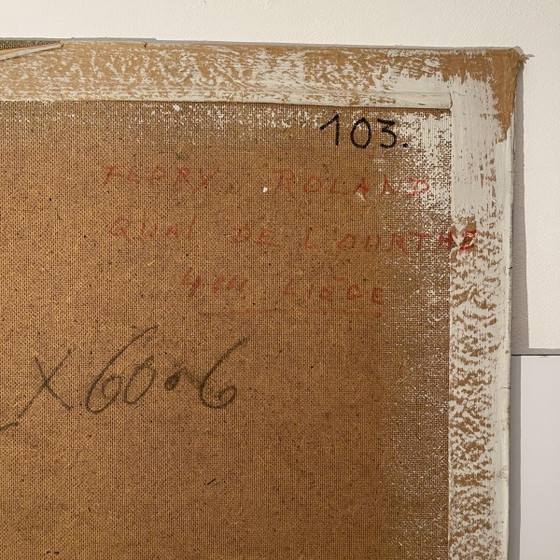 103.
FLORY ROLAND
QUAI DE L'OURTHE
LIÈGE
X 60